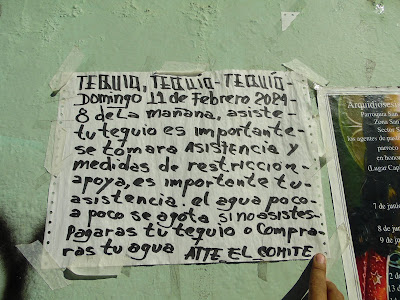 TEQUIO, TEQUIO-TEQUIO-
Domingo 11 de Febrero 2024-
8 de La mañana, asiste-
tu tequio es importante-
se tomara ASISTENCIA y
medidas de restricción-
apoya, es importente tu-
asistencia. el agua poco-
a poco se agota si no asistes-
Pagaras tu tequio o Compra-
ras tu agua ATTE EL COMITE
Arquidiócesis
Parroquia San
Zona San
Sector S
los agentes de past
parroco
en honor
(Lugar Cap
7 de
8 de
9 de